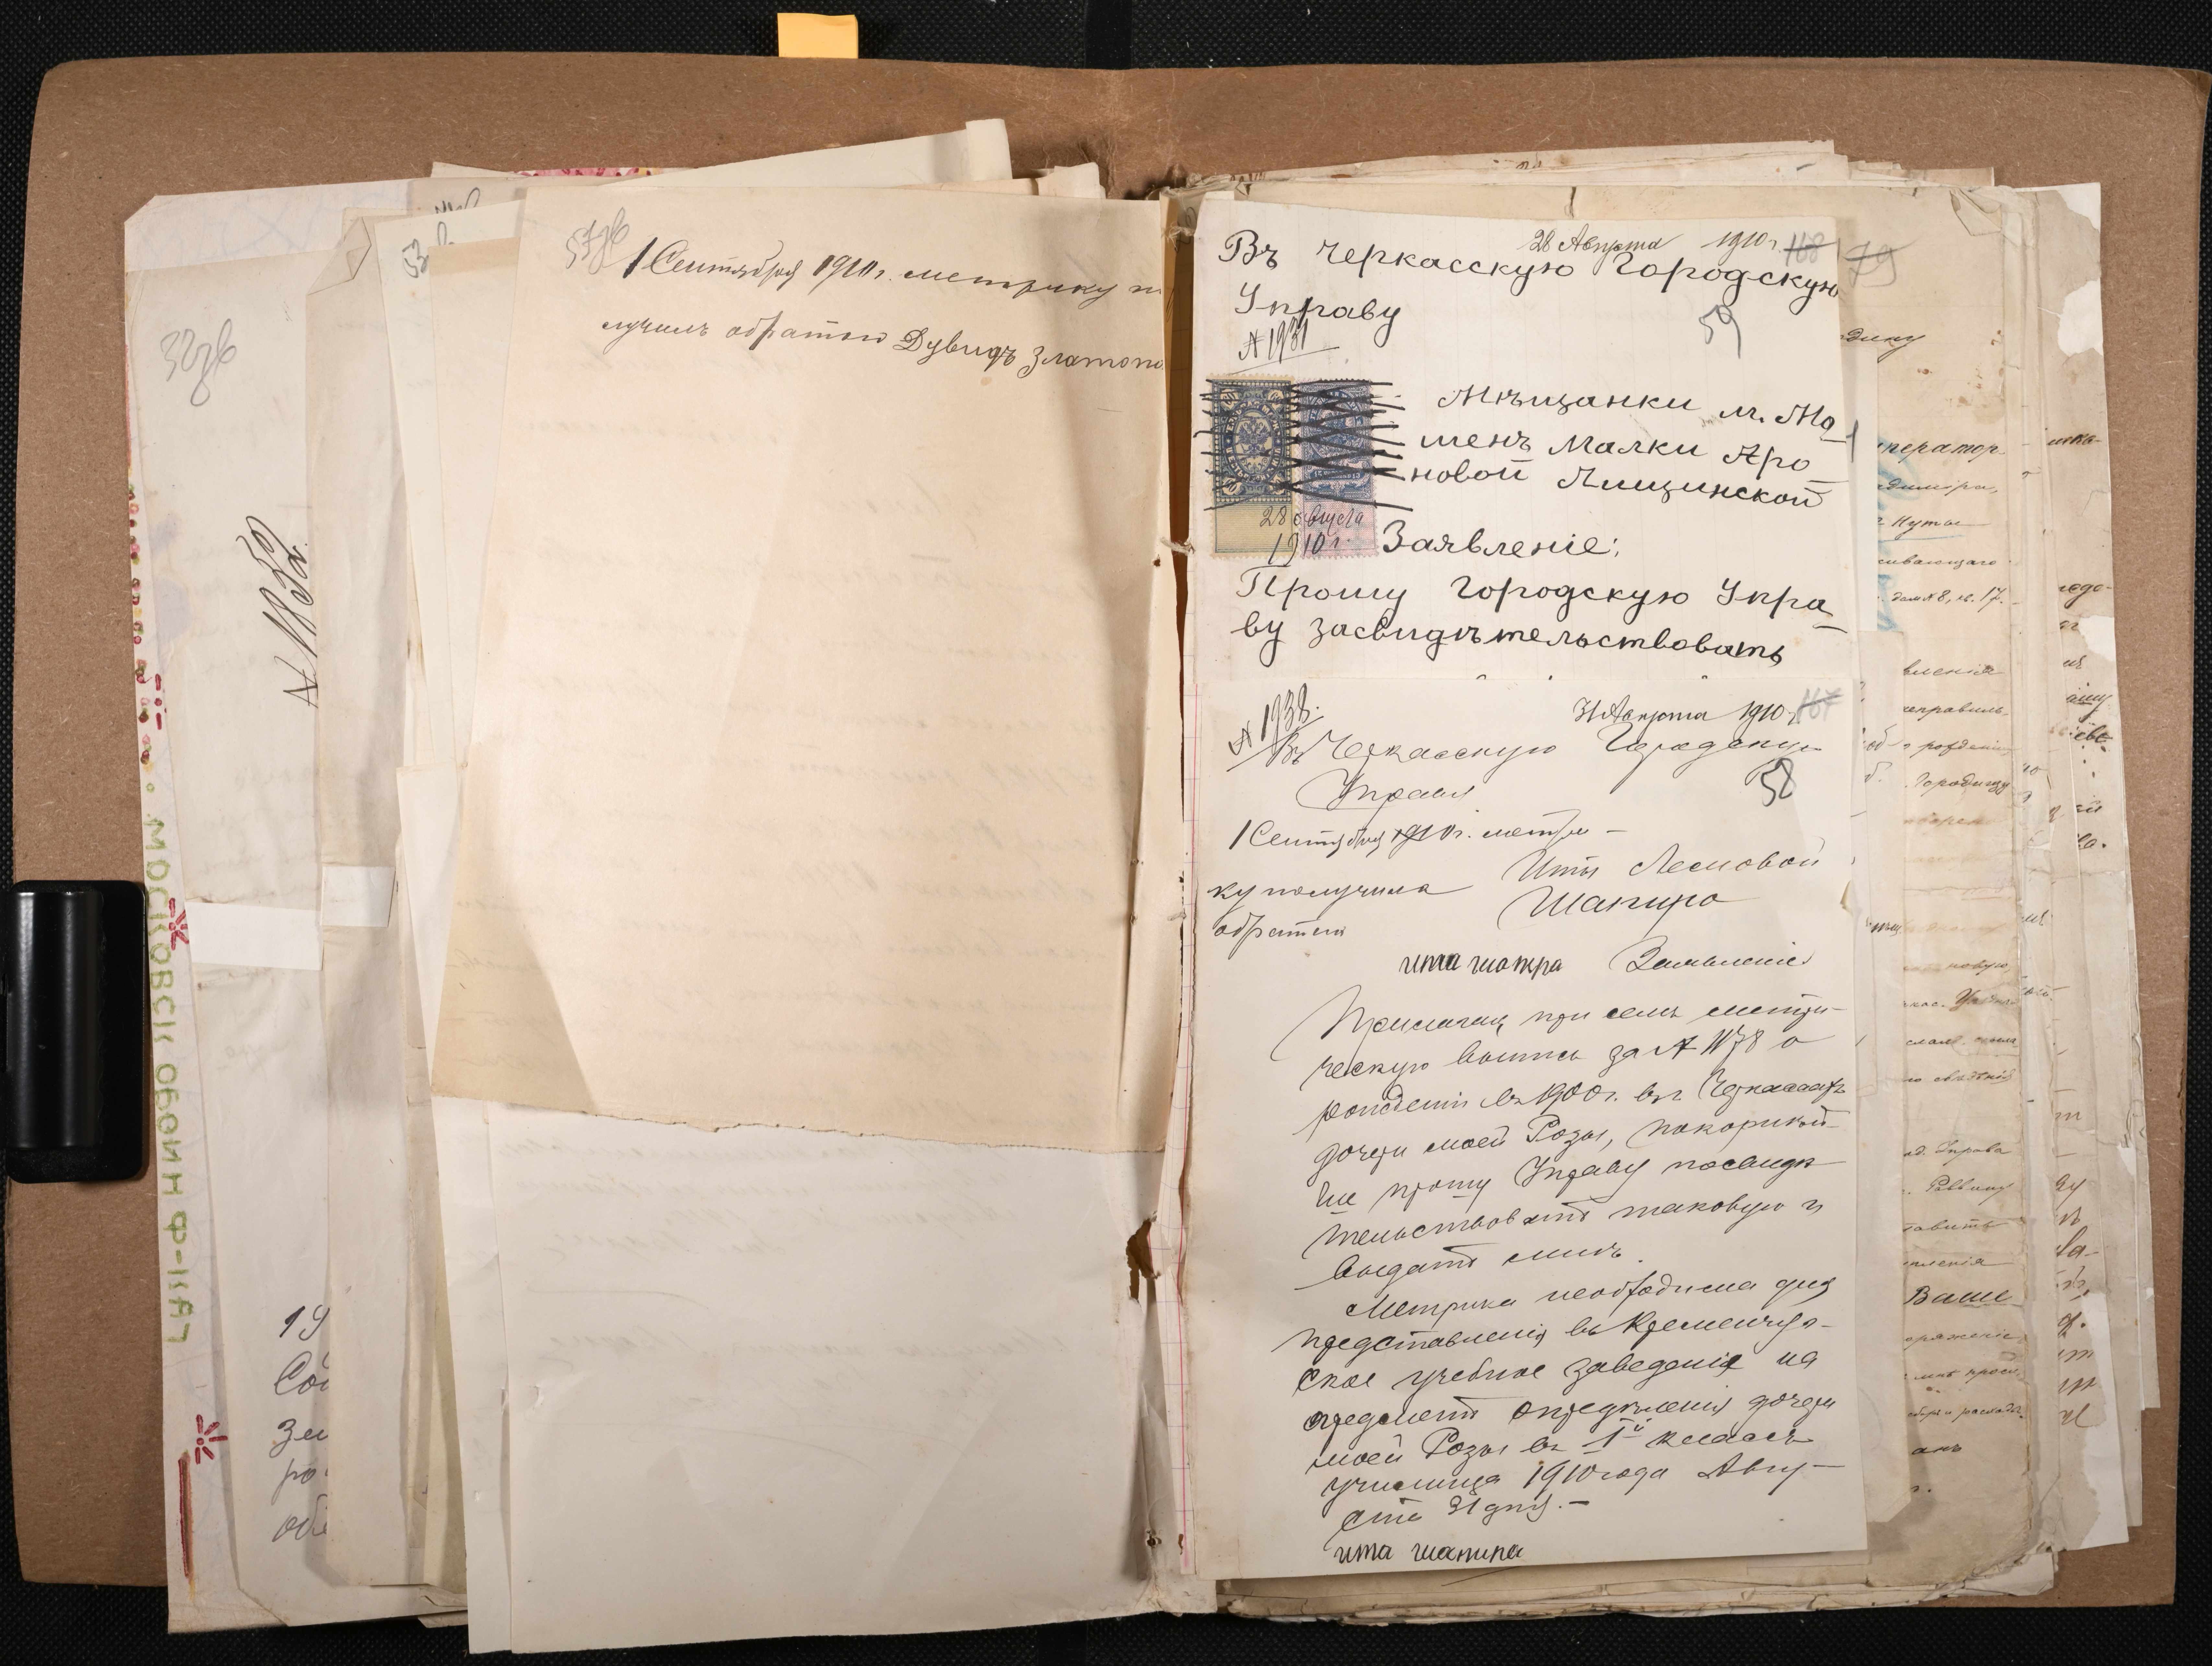 57об
1 Сентября 1910 г. метрику п
лучилъ обратно Дувидъ Златопо
32об
№ 1152
19
Сое
зем
МОСКОВСК ОБОИН Ф-КА 7
28 Августа 1910 г. 168
79
Въ Черкасскую Городскую
Управу
59
№ 1931
Мѣщанки м. Мо-
шенъ Малки Аро-
новой Лищинской
28 августа
1910 г.
Заявленіе:
Прошу Городскую Упра-
ву засвидѣтельствовать
№ 1938.
31 Августа 1910 г. 167
Въ Черкасскую Городскую
Управу
58
1 Сентября 1910 г. метри-
ку получила
обратно
Иты Лемовой
Шапиро
ита шапира
Заявленіе
Прилагая при семъ метри-
ческую выпись за № 1178 о
рожденіи въ 1900 г. въ г. Черкассахъ
дочери моей Розы, покорнѣй-
ше прошу Управу посвидѣ-
тельствовать таковую и
выдать мнѣ.
Метрика необходима для
представленія въ Кременчуг-
ское учебное заведеніе на
предметъ опредѣленія дочери
моей Розы въ 1й классъ
училища 1910 года Авгу-
ста 31 дня. -
ита шапира
дину
ператор
димира,
Нута
ивающаго
дом № 8, кв. 17.
вленія
неправиль-
о рожденіи
Городищу
новую,
од. Управа
тавить
Ваше
оряженіе